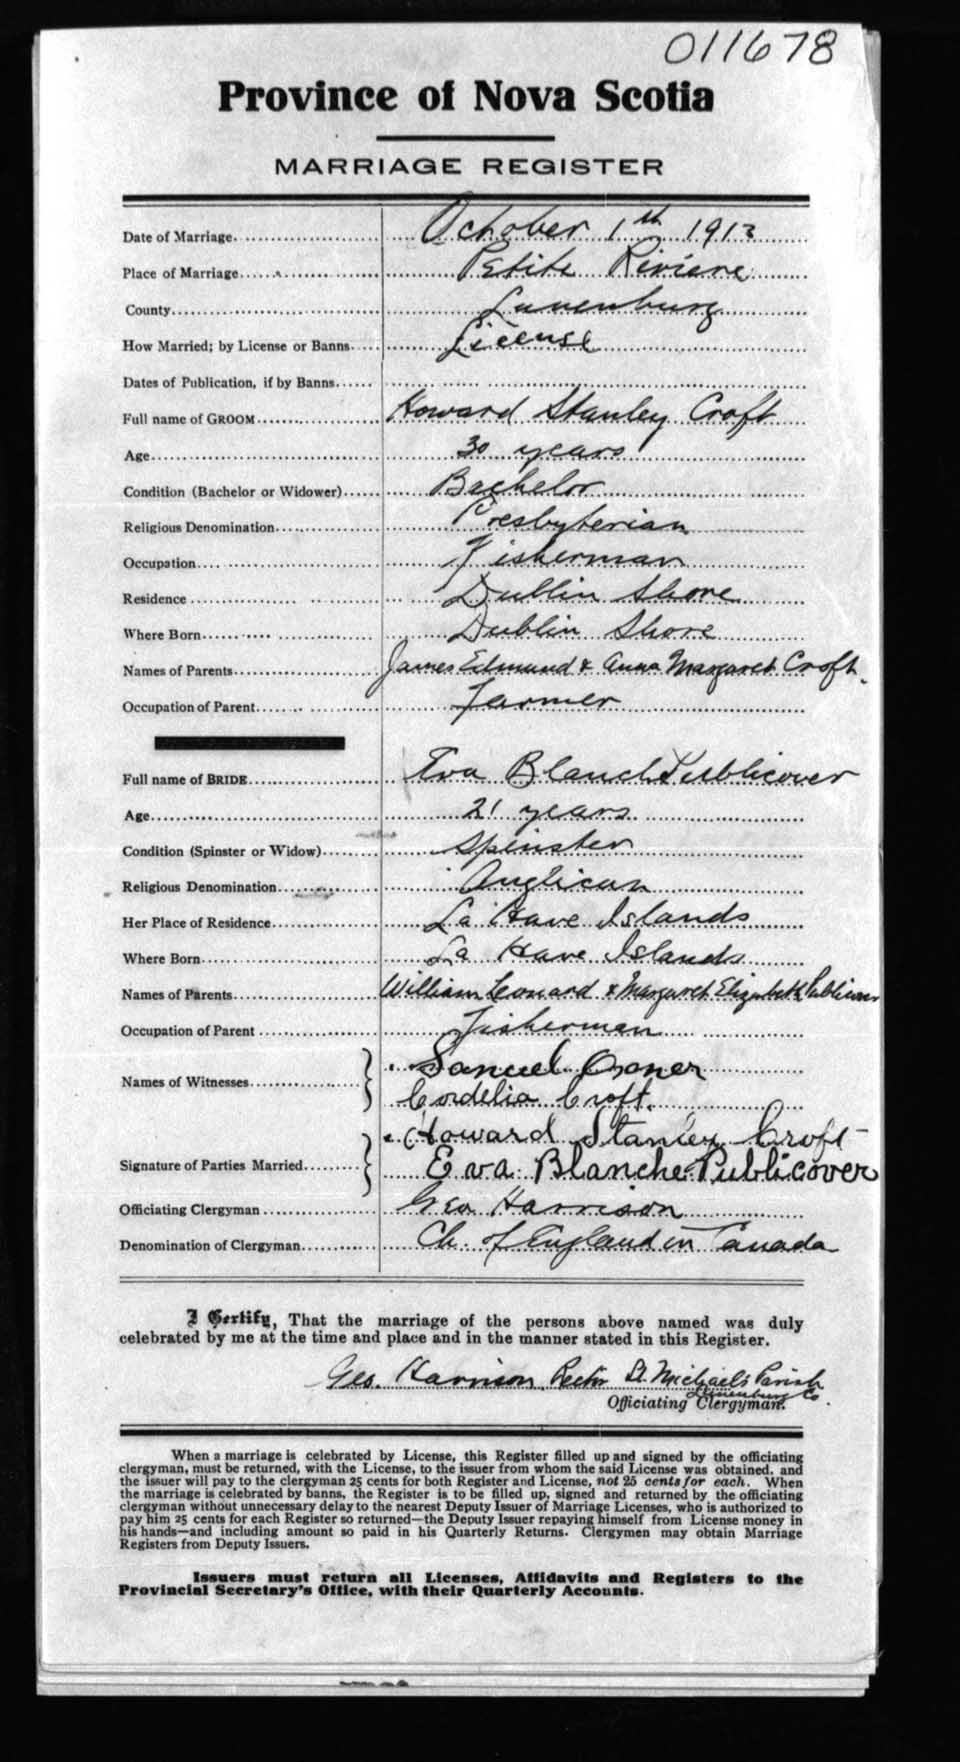 011678
Province of Nova Scotia
MARRIAGE REGISTER
Date of Marriage October 1th 1913
Place of Marriage Petite Riviere
County Lunenburg
How Married; by License or Banns License
Dates of Publication, if by Banns
Full name of GROOM Howard Stanley Croft
Age 30 years
Condition (Bachelor or Widower) Bachelor
Religious Denomination Presbyterian
Occupation Fisherman
Residence Dublin Shore
Where Born Dublin Shore
Names of Parents James Edmund & Anna Margaret Croft.
Occupation of Parent Farmer
Full name of BRIDE Eva Blanch Publicover
Age 21 years
Condition (Spinster or Widow) Spinster
Religious Denomination Anglican
Her Place of Residence La Have Islands
Where Born La Have Islands
Names of Parents William Leonard & Margaret Elizabeth Publicover
Occupation of Parent Fisherman
Names of Witnesses Samuel
Cordelia Croft.
Signature of Parties Married Howard Stanley Croft
Eva Blanche Publicover
Officiating Clergyman Geo Harrison
Denomination of Clergyman Ch. of England in Canada
I Certify, That the marriage of the persons above named was duly
celebrated by me at the time and place and in the manner stated in this Register.
Geo. Harrison, Rector St. Michael's Parish
Lunenburg Co.
Officiating Clergyman.
When a marriage is celebrated by License, this Register filled up and signed by the officiating
clergyman, must be returned, with the License, to the issuer from whom the said License was obtained, and
the issuer will pay to the clergyman 25 cents for both Register and License, not 25 cents for each. When
the marriage is celebrated by banns, the Register is to be filled up, signed and returned by the officiating
clergyman without unnecessary delay to the nearest Deputy Issuer of Marriage Licenses, who is authorized to
pay him 25 cents for each Register so returned—the Deputy Issuer repaying himself from License money in
his hands—and including amount so paid in his Quarterly Returns. Clergymen may obtain Marriage
Registers from Deputy Issuers.
Issuers must return all Licenses, Affidavits and Registers to the
Provincial Secretary's Office, with their Quarterly Accounts.